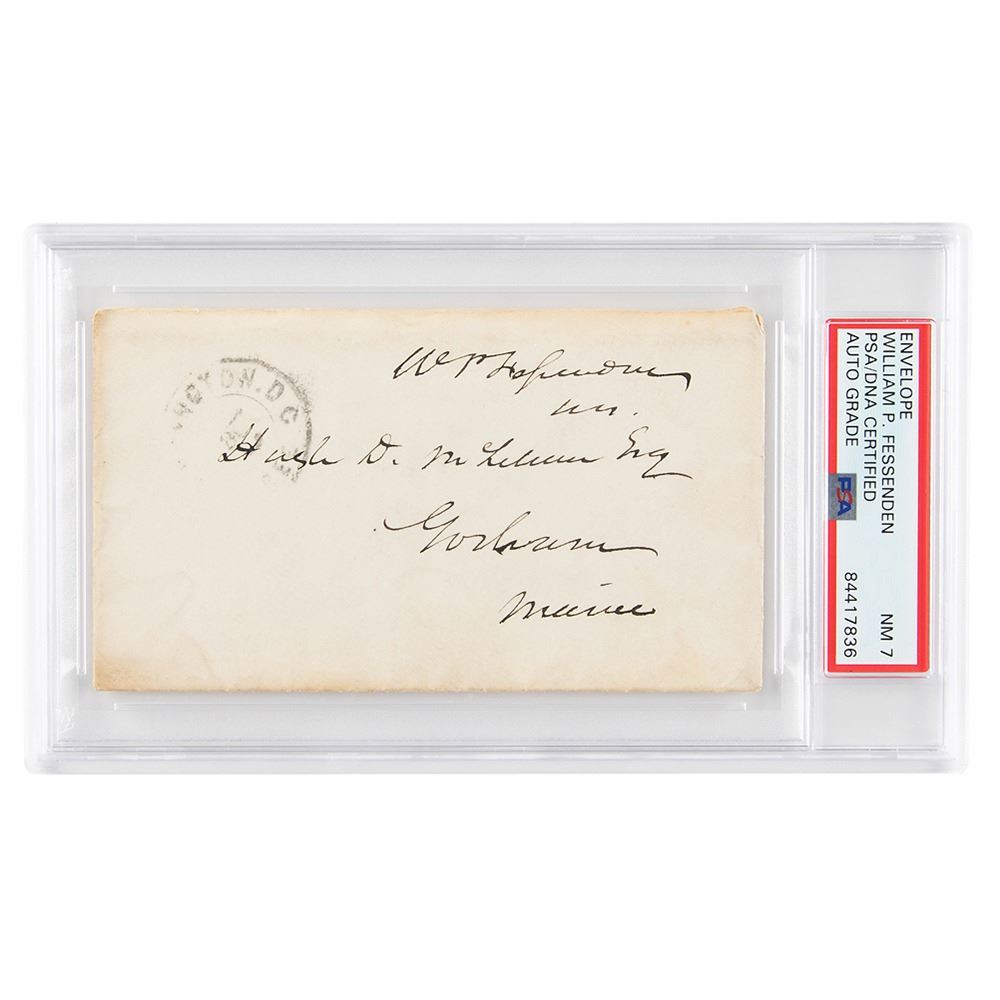 W P Fessenden
Hugh D. McLellan Esq
Gorham
Maine
NGTON. D.C
ENVELOPE
WILLIAM P. FESSENDEN NM 7
PSA/DNA CERTIFIED
AUTO GRADE 84417836
PSA